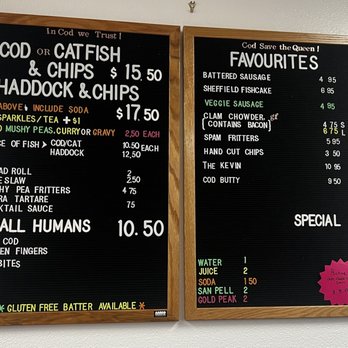 In Cod we Trust!
COD OR CATFISH
& CHIPS $15.50
HADDOCK & CHIPS
ABOVE INCLUDE SODA $17.50
SPARKLES/TEA + $1
MUSHY PEAS, CURRY OR GRAVY 2.50 EACH
CE OF FISH COD/CAT 10.50 EACH
HADDOCK 12.50
AD ROLL 2
E SLAW 2.50
HY PEA FRITTERS 4 75
RA TARTARE
KTAIL SAUCE 2.75
ALL HUMANS 10.50
COD
EN FINGERS
BITES
* GLUTEN FREE BATTER AVAILABLE *
Cod Save the Queen!
FAVOURITES
BATTERED SAUSAGE 4 95
SHEFFIELD FISHCAKE 6 95
VEGGIE SAUSAGE 4 95
CLAM CHOWDER. gf
(CONTAINS BACON) 4 75 S
6 75 L
SPAM FRITTERS 5 95
HAND CUT CHIPS 3 50
THE KEVIN 10 95
COD BUTTY 9 50
SPECIAL
WATER 1
JUICE 2
SODA 1 50
SAN PELL 2
GOLD PEAK 2